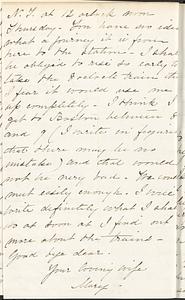 N.Y. at 12 o'clock noon
Thursday. You have no idea
what a journey it is from
here to the station - I shall
be obliged to rise so early to
take the 7 o'clock train that
I fear it would use me
up completely. I think I
get to Boston between 8
and 9 (I write in figures
that there may be no
mistake) and that would
not be very bad. You could
meet easily enough. I will
write definitely what I shall
do as soon as I find out
more about the trains -
Good bye dear.
Your loving wife
Mary -